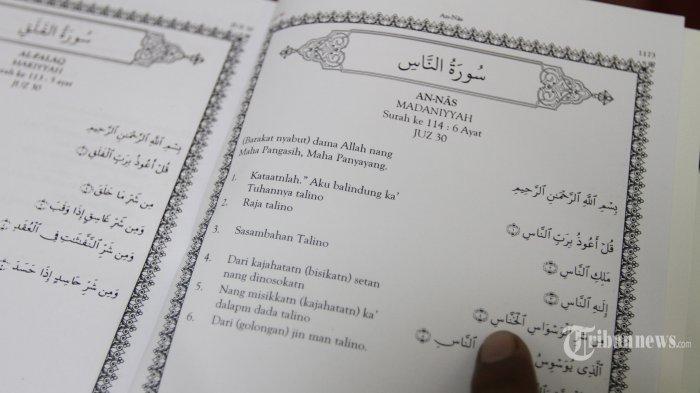 سُورَةُ الفَلَقِ
AL-FALAQ
MAKIYYAH
Surah ke 113 : 5 Ayat
JUZ 30
بِسْمِ اللَّهِ الرَّحْمَٰنِ الرَّحِيمِ
قُلْ أَعُوذُ بِرَبِّ الْفَلَقِ ۝١
مِن شَرِّ مَا خَلَقَ ۝٢
وَمِن شَرِّ غَاسِقٍ إِذَا وَقَبَ ۝٣
وَمِن شَرِّ النَّفَّاثَاتِ فِي الْعُقَدِ ۝٤
وَمِن شَرِّ حَاسِدٍ إِذَا حَسَدَ ۝٥
An-Nâs
1173
سُورَةُ النَّاسِ
AN-NÂS
MADANIYYAH
Surah ke 114 : 6 Ayat
JUZ 30
(Barakat nyabut) dama Allah nang
Maha Pangasih, Maha Panyayang.
1. Kataatnlah." Aku balindung ka'
Tuhannya talino
2. Raja talino
3. Sasambahan Talino
4. Dari kajahatatn (bisikatn) setan
nang dinosokatn
5. Nang misikkatn (kajahatatn) ka'
dalapm dada talino
6. Dari (golongan) jin man talino.
بِسْمِ اللَّهِ الرَّحْمَٰنِ الرَّحِيمِ
قُلْ أَعُوذُ بِرَبِّ النَّاسِ ۝١
مَلِكِ النَّاسِ ۝٢
إِلَٰهِ النَّاسِ ۝٣
الْوَسْوَاسِ الْخَنَّاسِ ۝٤
الَّذِي يُوَسْوِسُ
النَّاسِ
Tribunnews.com